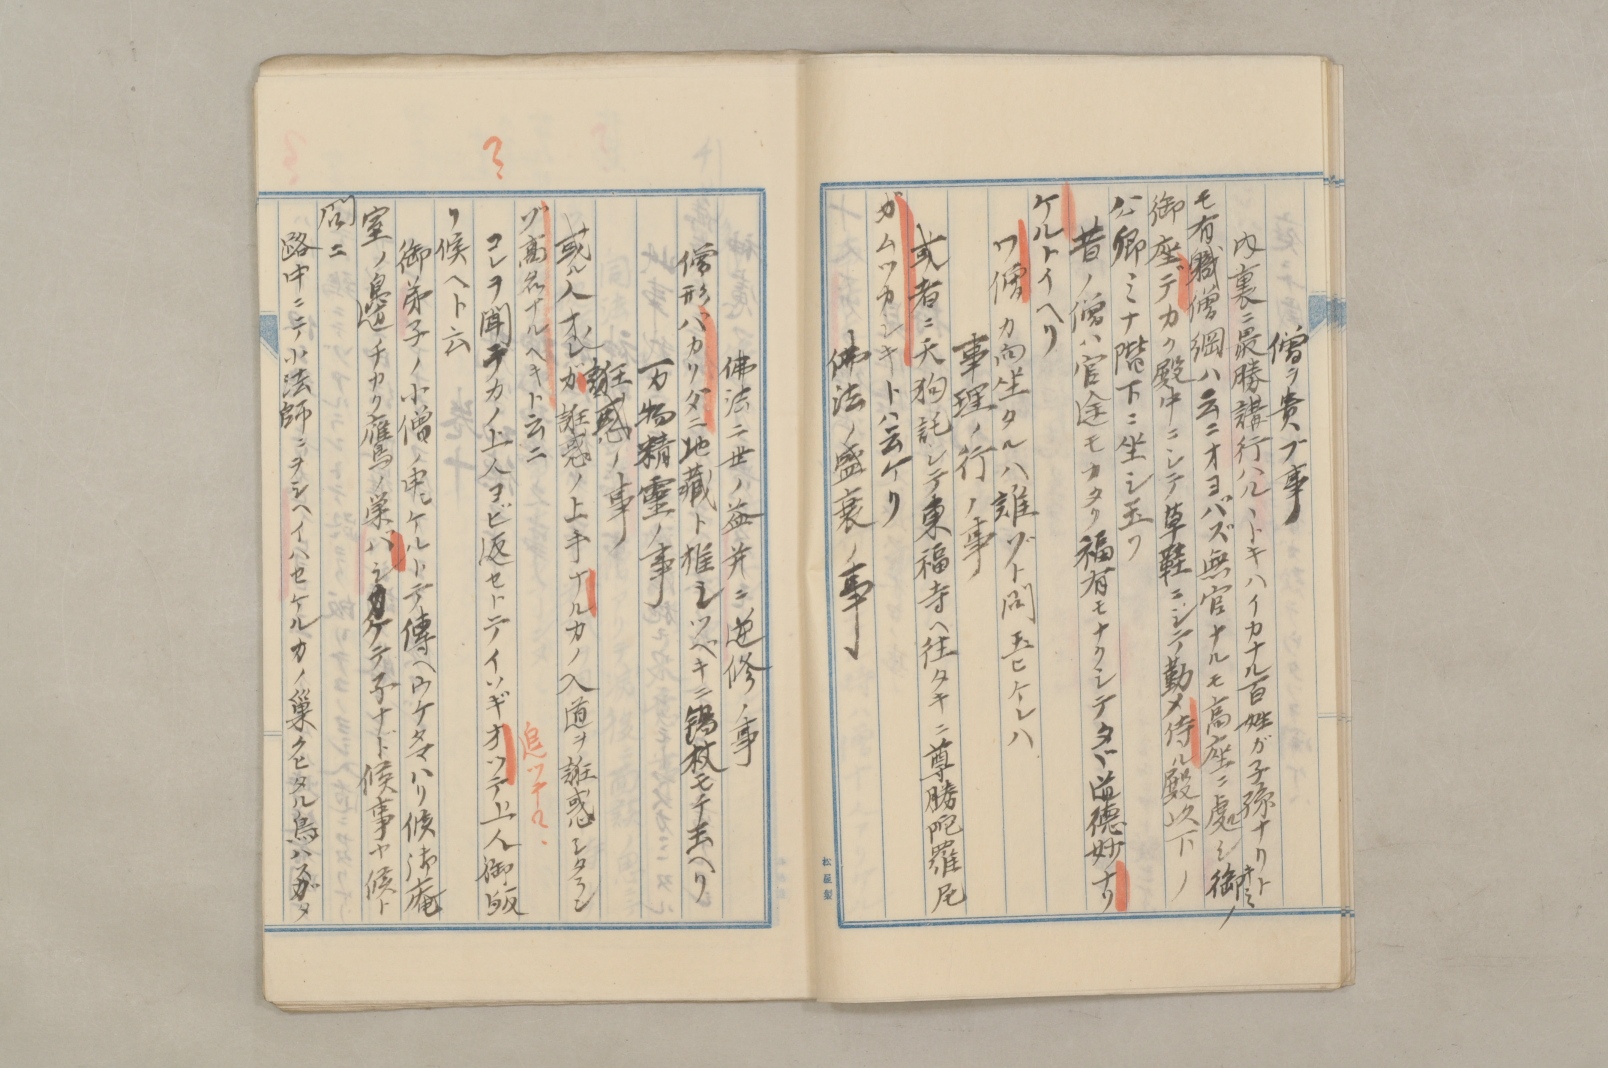 僧ヲ貴ブ事
内裏ニ最勝講行ハルヽトキハイカナル百姓ガ子孫ナリト
モ有職僧綱ハ云ニオヨバズ無官ナルモ高座ニ處シ御
御座デカク殿中ニシテ草鞋ニシテ勤メ侍ル殿以下ノ
公卿ミナ階下ニ坐シ玉フ
昔ノ僧ハ官途モカタク福有モナクシテタヾ道徳妙ナリ
ケルトイヘリ
ワ僧カ向坐タルハ誰ゾト問玉ヒケレハ
事理ノ行ノ事
或者ニ天狗託シテ東福寺ヘ往タキニ尊勝陀羅尼
ガムツカシキトハ云ケリ
佛法ノ盛衰ノ事
松屋製
佛法二世ノ益并ニ逆修ノ事
僧形バカリダニ地藏ト推シツベキニ錫杖モチ玉ヘリ
万物精靈ノ事
誑惑ノ事
或ル人オレガ誑惑ノ上手ナルカノ入道ヲ誑惑シタラン
ゾ高名ナルヘキト云ニ
コレヲ聞テカノ上人ヨビ返セトテイソギオツテ上人御皈
リ候ヘト云
追ツテ
御弟子ノ小僧ノ申ケルトテ傳ヘウケタマハリ候御庵
室ノ邊チカク雁鳥ノ巣バシカケテ子ナド候事ヤ候ト
問ニ
路中ニテ小法師ニヲシヘイハセケルカノ巢クヒタル鳥ハスガタ